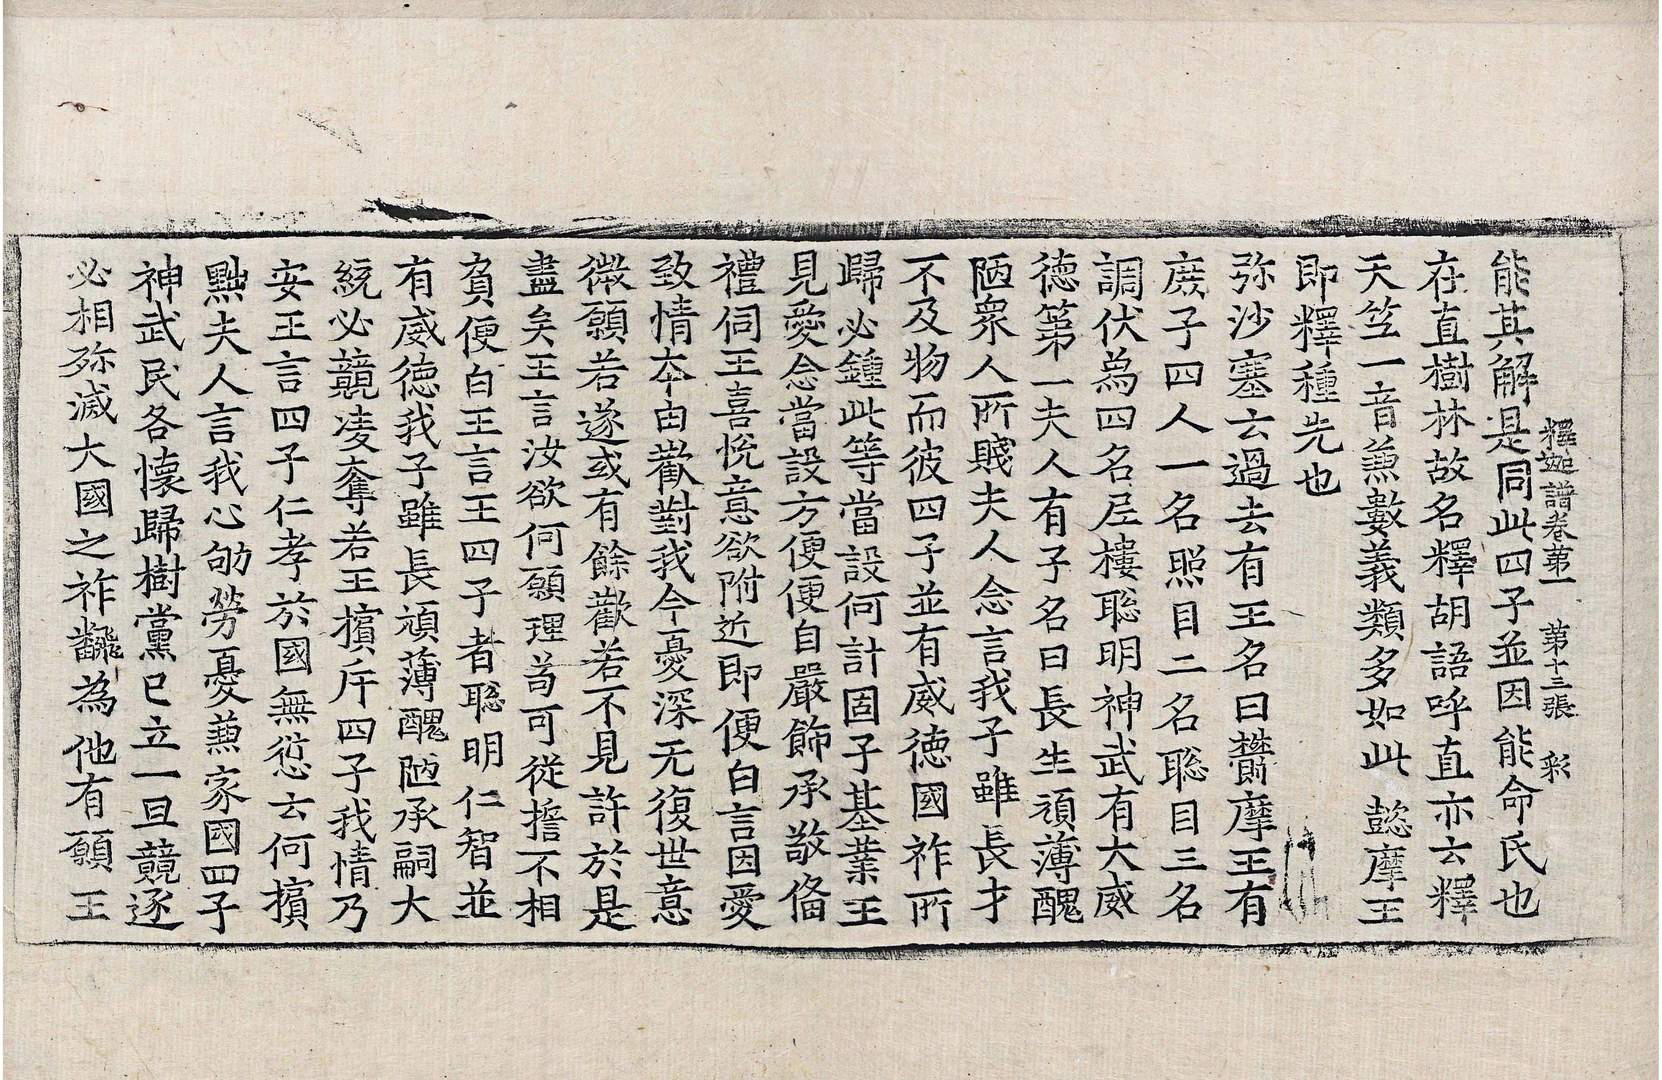 能其解是同此四子並因能命氏也
釋迦譜卷第一　第十三張　彩
在直樹林故名釋胡語呼直亦云釋
天笁一音兼數義類多如此　懿摩王
即釋種先也
弥沙塞云過去有王名曰欝摩王有
庻子四人一名照目二名聡目三名
調伏為四名尼樓聡明神武有大威
德第一夫人有子名曰長生頑薄醜
陋衆人所賤夫人念言我子雖長才
不及物而彼四子並有威德國祚所
歸必鍾此等當設何計固子基業王
見愛念當設方便便自嚴飾承敬俻
禮伺王喜悅意欲附近即便白言因愛
致情夲由歡對我今憂深无復世意
微願若遂或有餘歡若不見許於是
盡矣王言汝欲何願理苟可從誓不相
負便白王言王四子者聡明仁智並
有威德我子雖長頑薄醜陋承嗣大
統必競凌奪若王擯斥四子我情乃
安王言四子仁孝於國無愆云何擯
黜夫人言我心劬勞憂兼家國四子
神武民各懷歸樹黨已立一旦競逐
必相殄滅大國之祚飜為他有願王